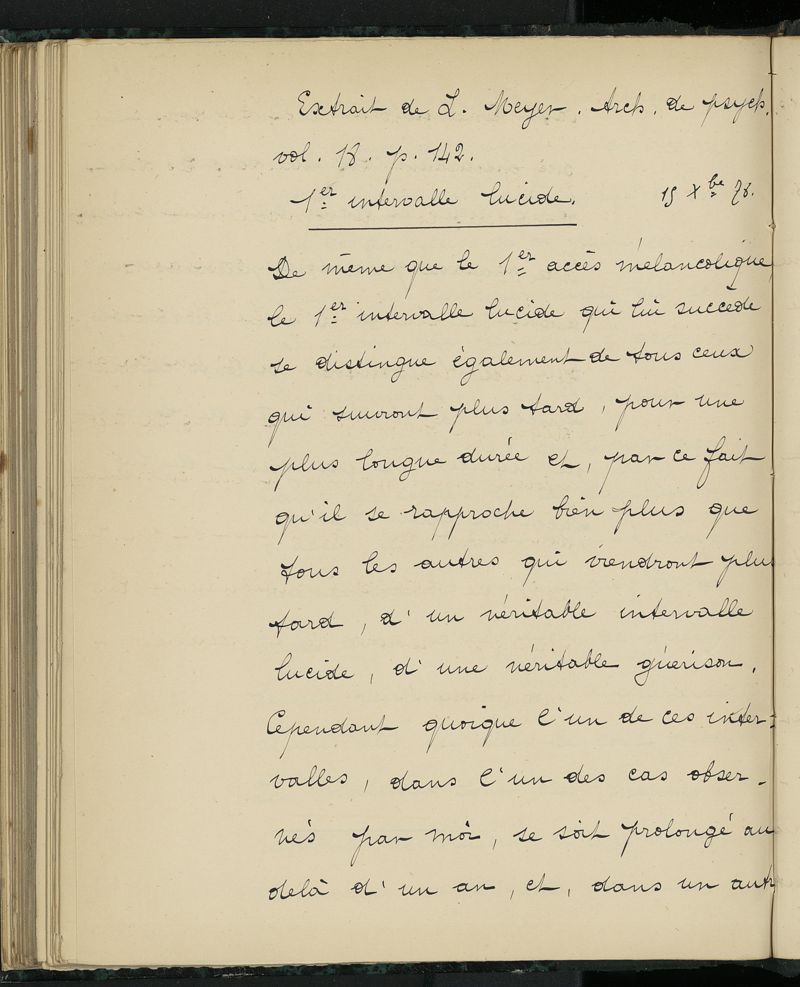 Extrait de L. Meyer. Arch. de psych.
vol. 18. p. 142.
1er intervalle lucide. 15 Xbe 78.
De même que le 1er accès mélancolique,
le 1er intervalle lucide qui lui succède
se distingue également de tous ceux
qui suivront plus tard, pour une
plus longue durée et, par ce fait
qu'il se rapproche bien plus que
tous les autres qui viendront plus
tard, d'un véritable intervalle
lucide, d'une véritable guérison.
Cependant quoique l'un de ces inter-
valles, dans l'un des cas obser-
vés par moi, se soit prolongé au
delà d'un an, et, dans un autr